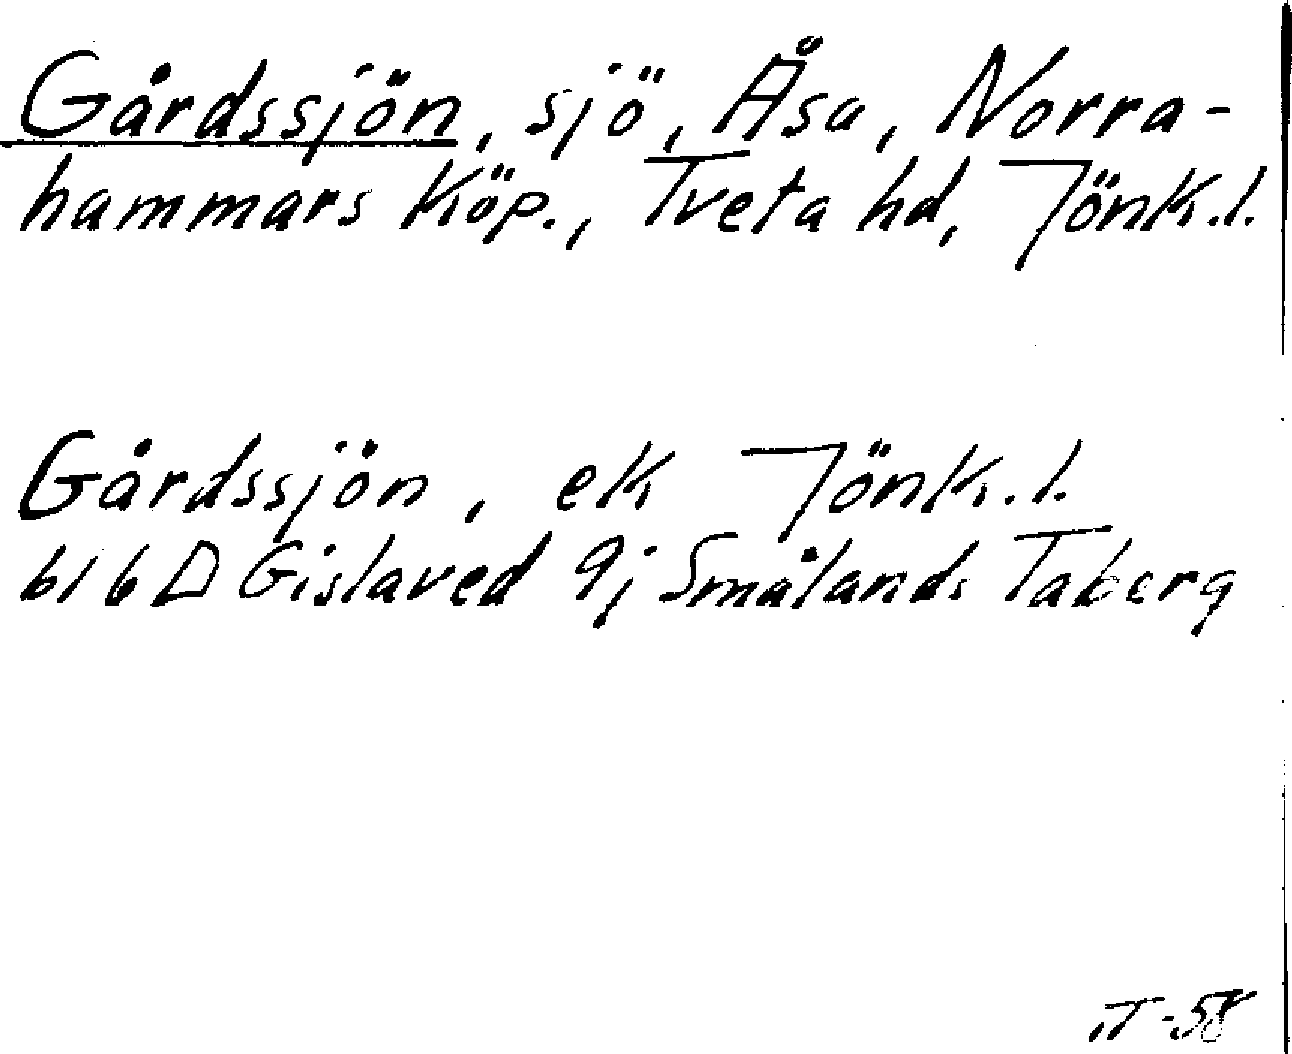 Gårdssjön, sjö, Åsa, Norra-
hammars Köp., Tveta hd, Jönk.l.
Gårdssjön, ek Jönk.l.
bl 6D Gislaved 9j Smålands Taberg
-58